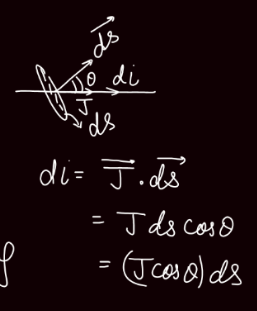 d⃗s
θ di
J⃗
ds
di = J⃗ . d⃗s
= J ds cos θ
= (J cos θ) ds